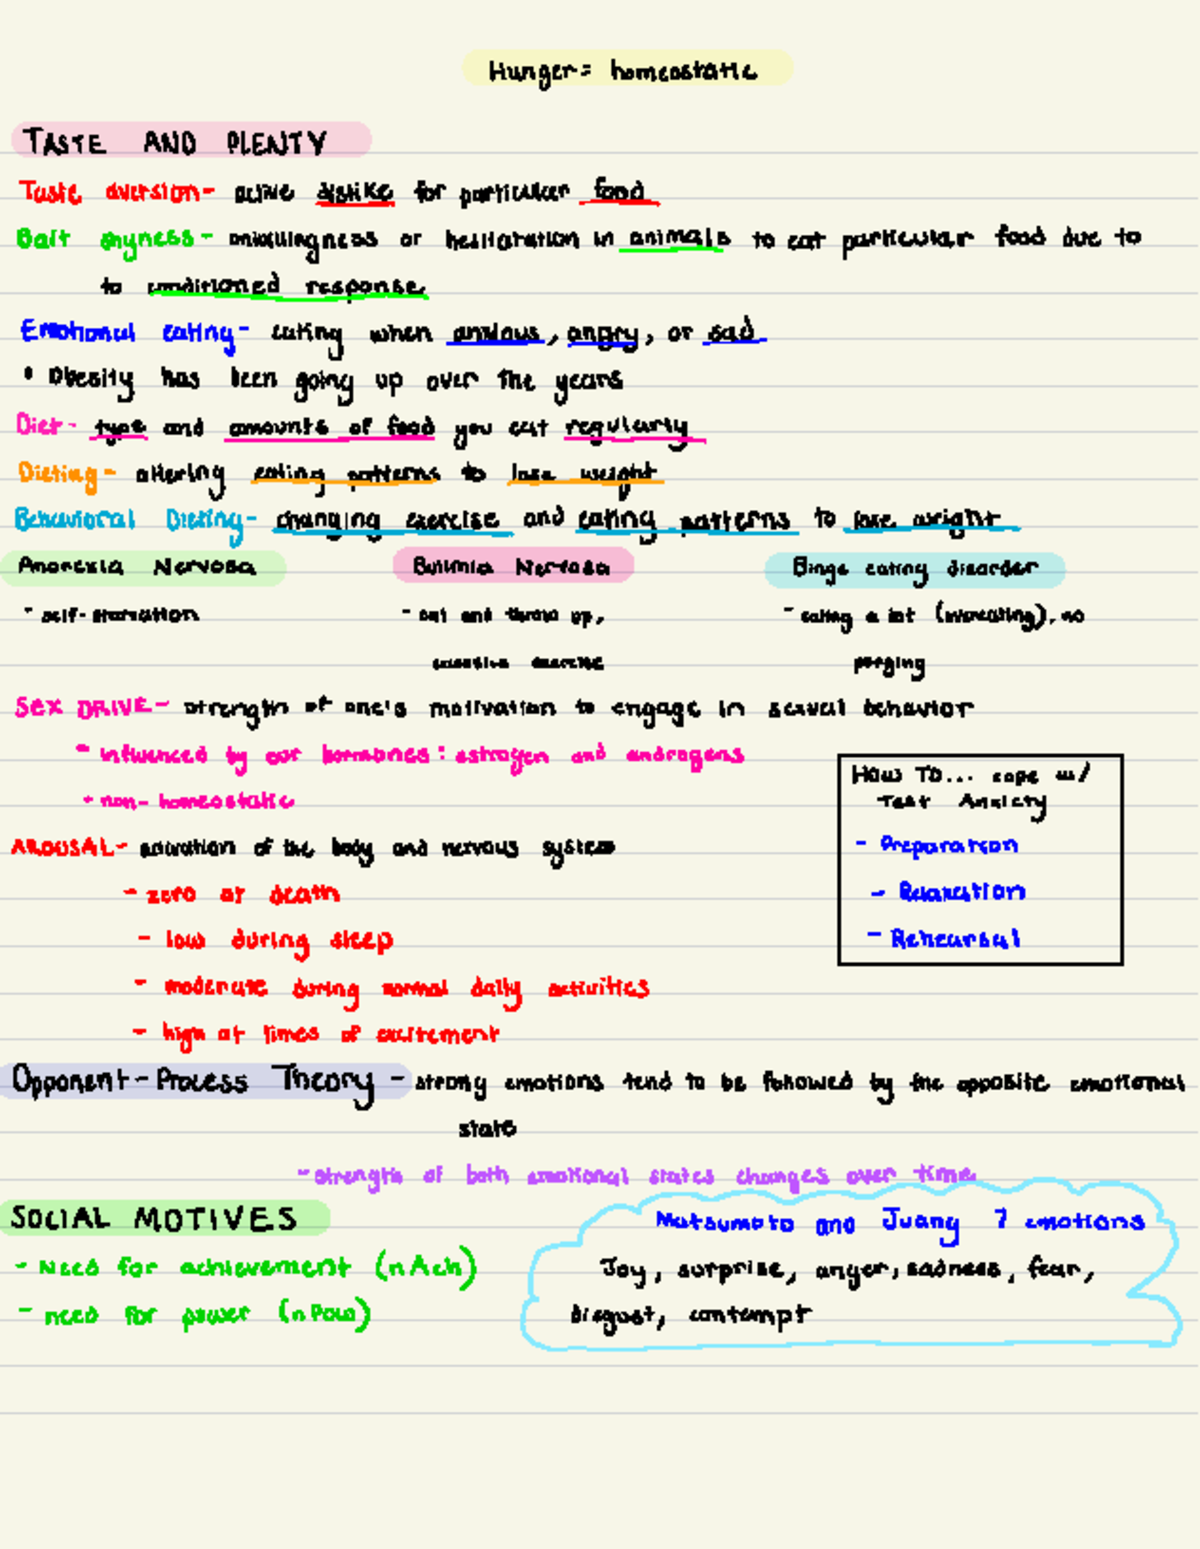 Hunger= homeostatic
TASTE AND PLENTY
Taste aversion- active dislike for particular food
Bait shyness- unwillingness or hesitaration in animals to eat particular food due to
to conditioned response
Emotional eating- eating when anxious, angry, or sad
• Obesity has been going up over the years
Diet- type and amounts of food you eat regularly
Dieting- altering eating patterns to lose weight
Behavioral Dieting- changing exercise and eating patterns to lose weight
Anorexia Nervosa Bulimia Nervosa Binge eating disorder
- self-starvation - eat and throw up, - eating a lot (overeating), no
excessive exercise purging
SEX DRIVE- strength of one's motivation to engage in sexual behavior
- influenced by our hormones: estrogen and androgens
- non-homeostatic
HOW TO... cope w/
Test Anxiety
- Preparation
- Relaxation
- Rehearsal
AROUSAL- activation of the body and nervous system
- zero at death
- low during sleep
- moderate during normal daily activities
- high at times of excitement
Opponent-Process Theory - strong emotions tend to be followed by the opposite emotional
state
- strength of both emotional states changes over time
SOCIAL MOTIVES
- Need for achievement (nAch)
- need for power (nPow)
Matsumoto and Juang 7 emotions
Joy, surprise, anger, sadness, fear,
disgust, contempt